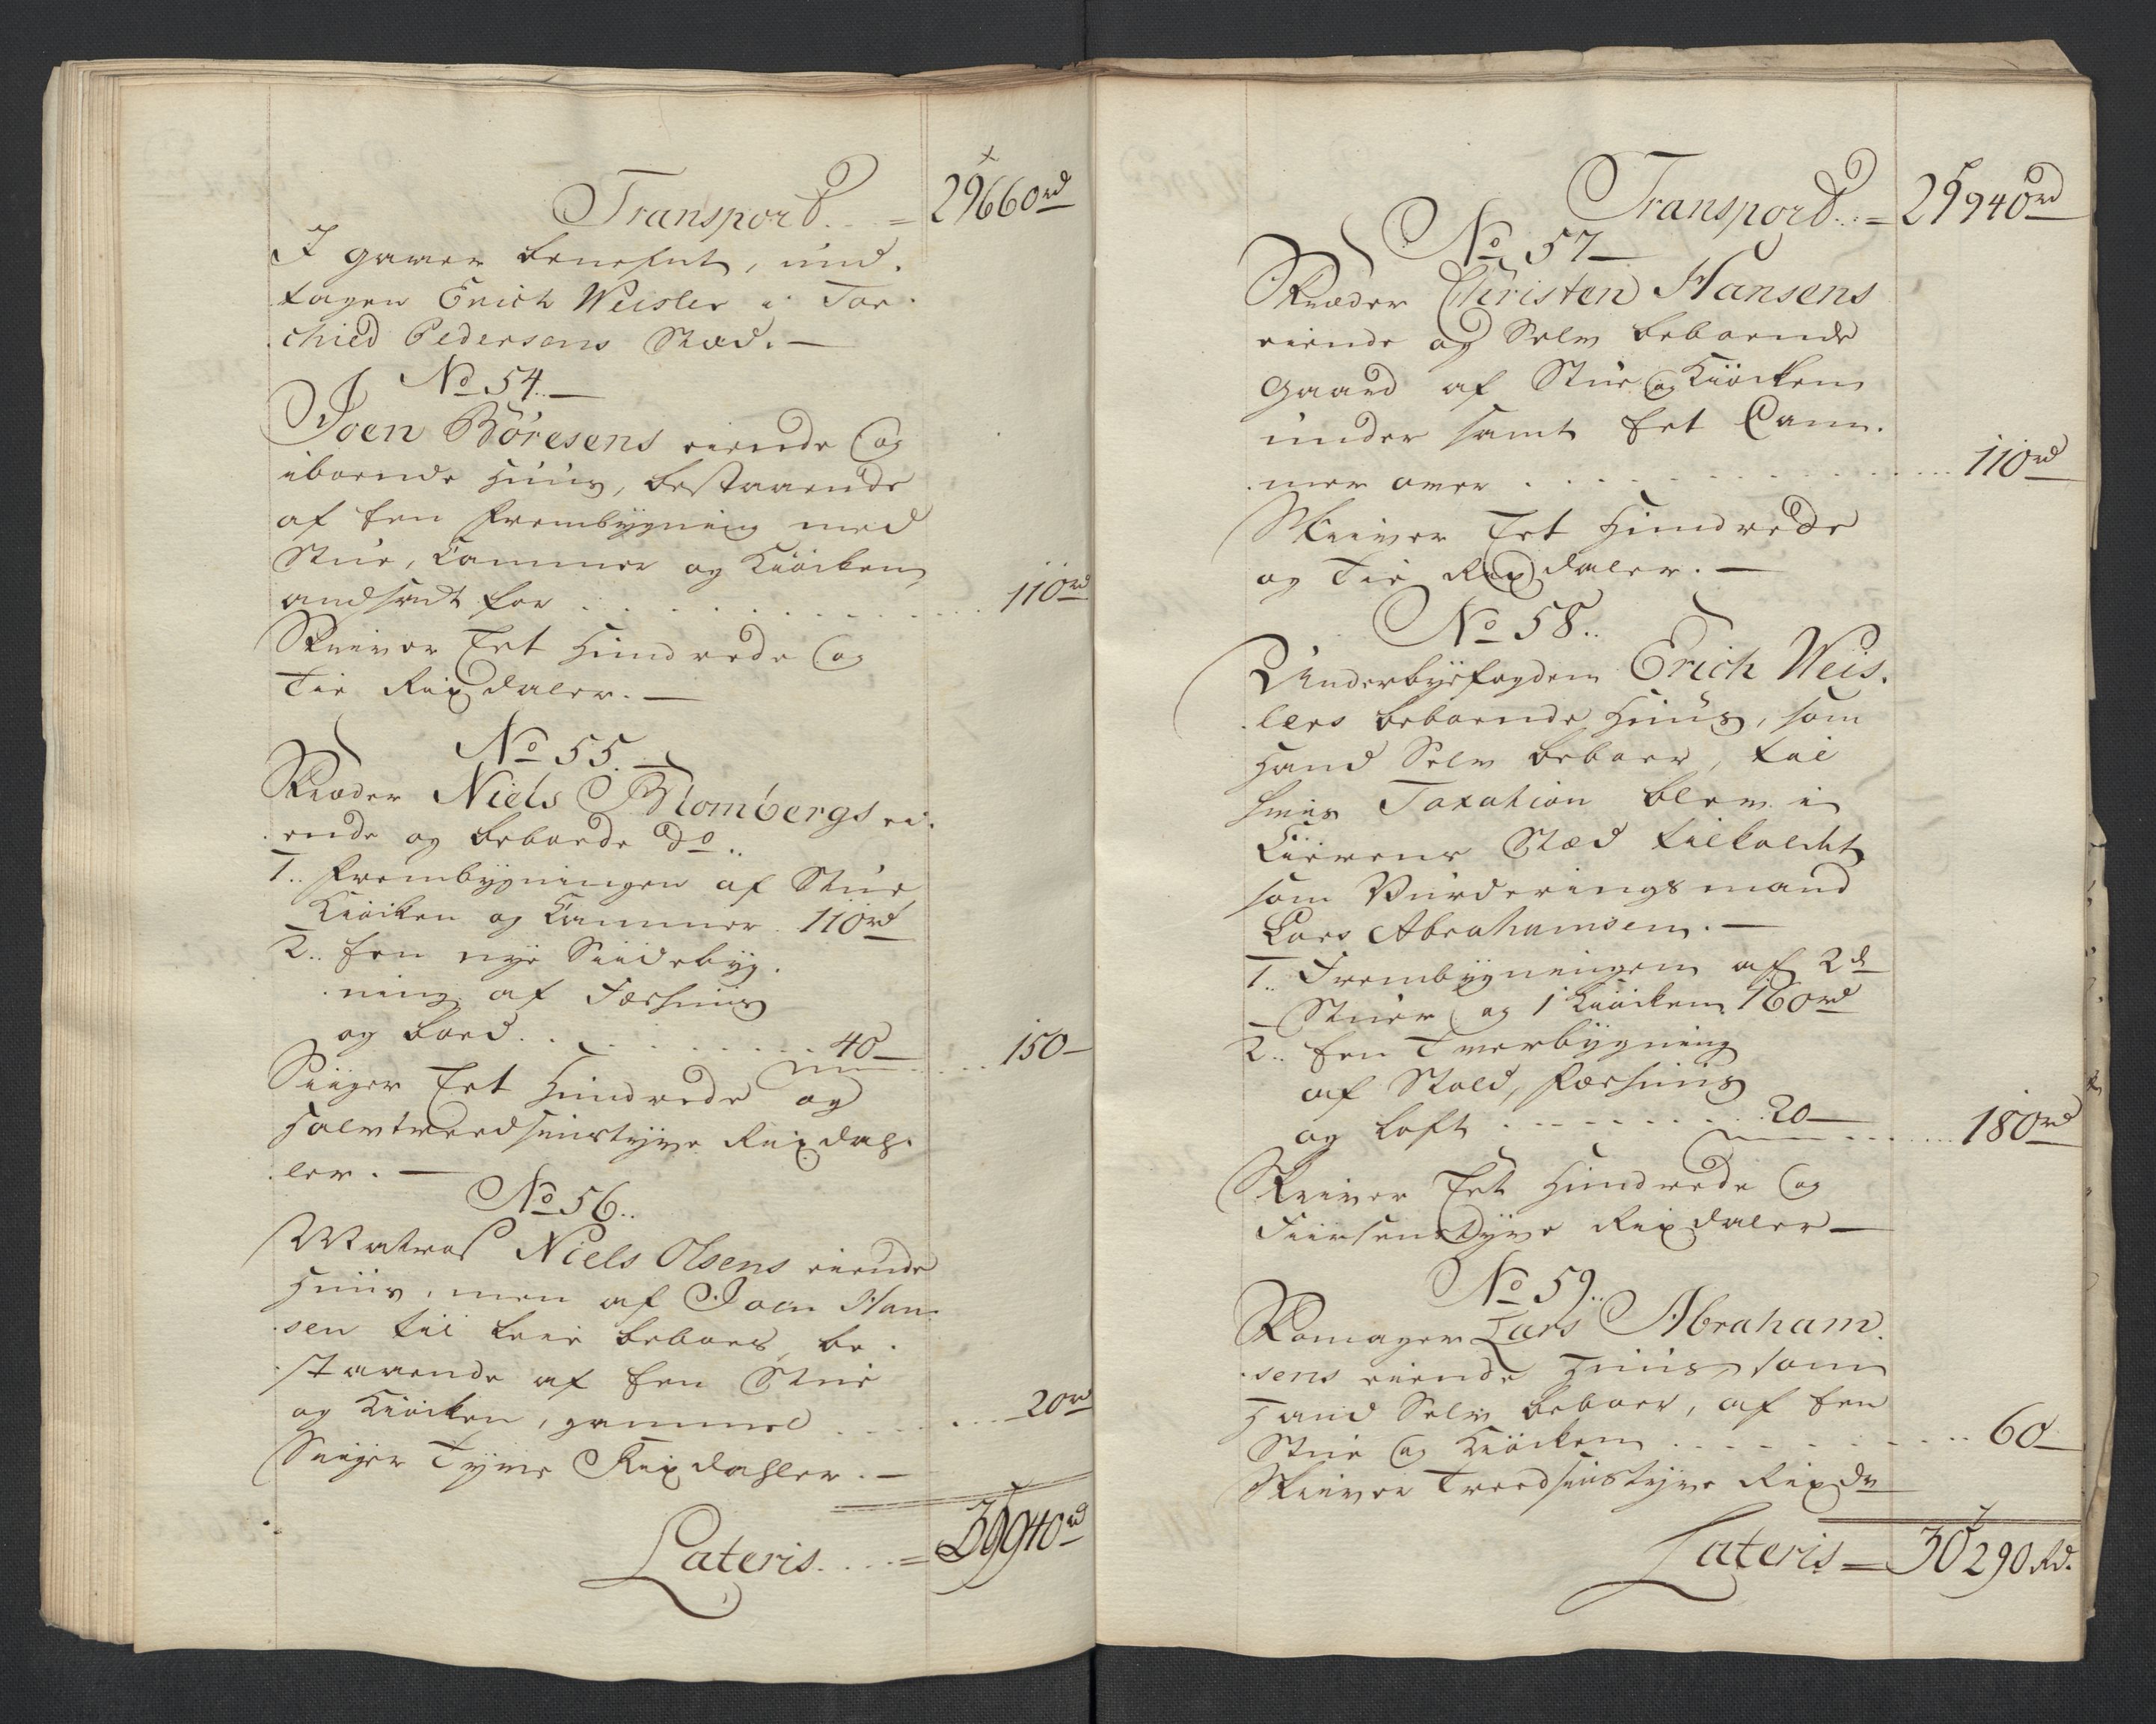 Transport. . . = 29660 rd
I gaver benefnt, und.
tagen Erich Weisler i Tor.
chied Pedersens Stæd. —
No 54. —
Joen Böresens eiende og
iboende Huus, bestaaende
af Een Frembygning med
Stue, Kammer og Kiöcken
andsadt for . . . . . . . 110 rd
Skriver Eet Hundrede og
Tie Rixdaler. —
No 55. —
Skræder Niels Blombergs ei.
ende og beboede do..
1.. Frembygningen af Stue
Kiöcken og Kammer. 110 rd
2.. Een nye Siidebyg.
ning af Fæehuus
og boed. . . . . . . . 40 — . . . 150 —
Siiger Eet Hundrede og
Halvtreedsindstyve Rixdah.
ler. —
No 56..
Matros Niels Olsens eiende
Huus, men af Joen Han
sen til Leie beboes, be.
staaende af Een Stue
og Kiöcken, gammel . . . . . 20 rd
Siiger Tyve Rixdahler. —
Lateris. . . . = 29940 rd
Transport. . = 29940 rd
No 57 —
Skræder Christen Hansens
eiende og Selv beboende
Gaard af Stue og Kiöcken
under samt Eet Cam.
mer over . . . . . . . . . 110 rd
Skriver Eet Hundrede
og Tie Rixdaler. —
No 58..
Underbyefogden Erich Weis.
lers beboende Huus, som
Hand Selv beboer, til
hvis Taxation blev i
Eierens Stæd tilkaldet
som Vurderingsmand
Lars Abrahamsen. —
1.. Frembygningen af 2de
Stuer og 1 Kiöcken 160 rd
2.. Een Tverbygning
af Stald, Fæehuus
og Loft . . . . . . . 20 — . . . 180 rd
Skriver Eet Hundrede og
Fiirsindstyve Rixdaler —
No 59..
Skomager Lars Abraham.
sens eiende Huus som
Hand Selv beboer, af Een
Stue og Kiöcken . . . . . . . . 60 —
Skriver Treedsindstyve Rixdr
Lateris = 30290 Rd.